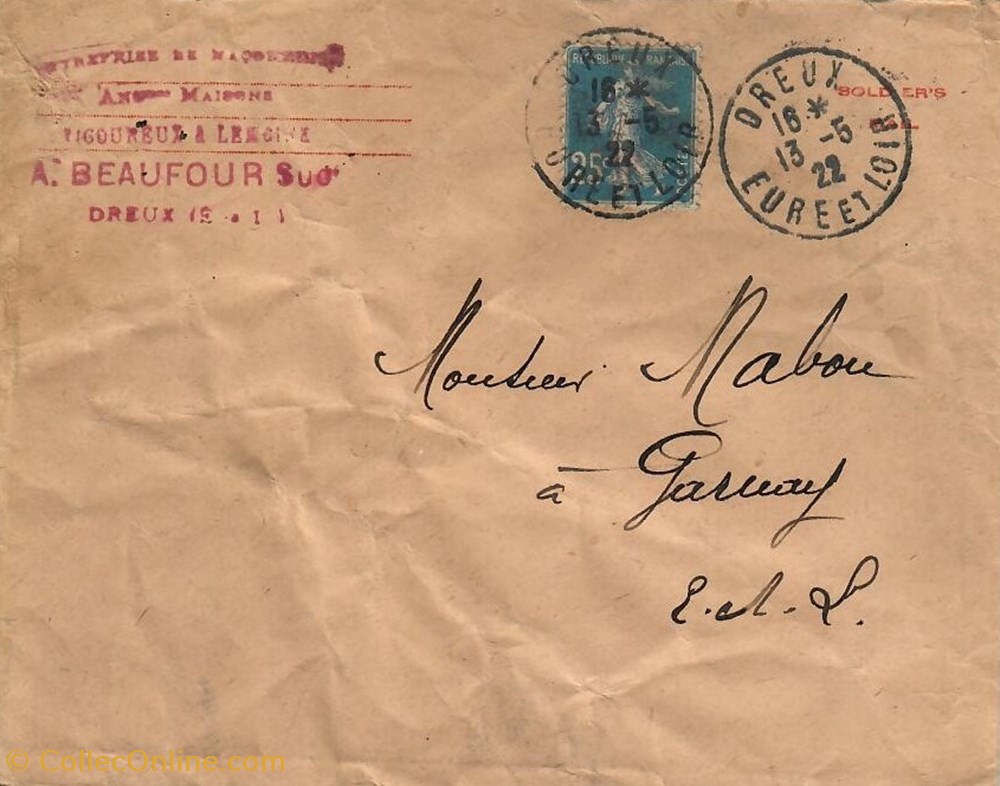 ENTREPRISE DE MAÇONNERIE
ANCnes MAISONS
VIGOUREUX & LEMOINE
A. BEAUFOUR Sucr
DREUX (E-&-L)
REPUBLIQUE FRANÇAISE
25c
POSTES
DREUX
16 *
13 -5
22
EURE ET LOIR
DREUX
16 *
13 -5
22
EURE ET LOIR
SOLDIER'S
MAIL
Monsieur Mabou
à Garnay
E.-et-L.
© CollecOnline.com